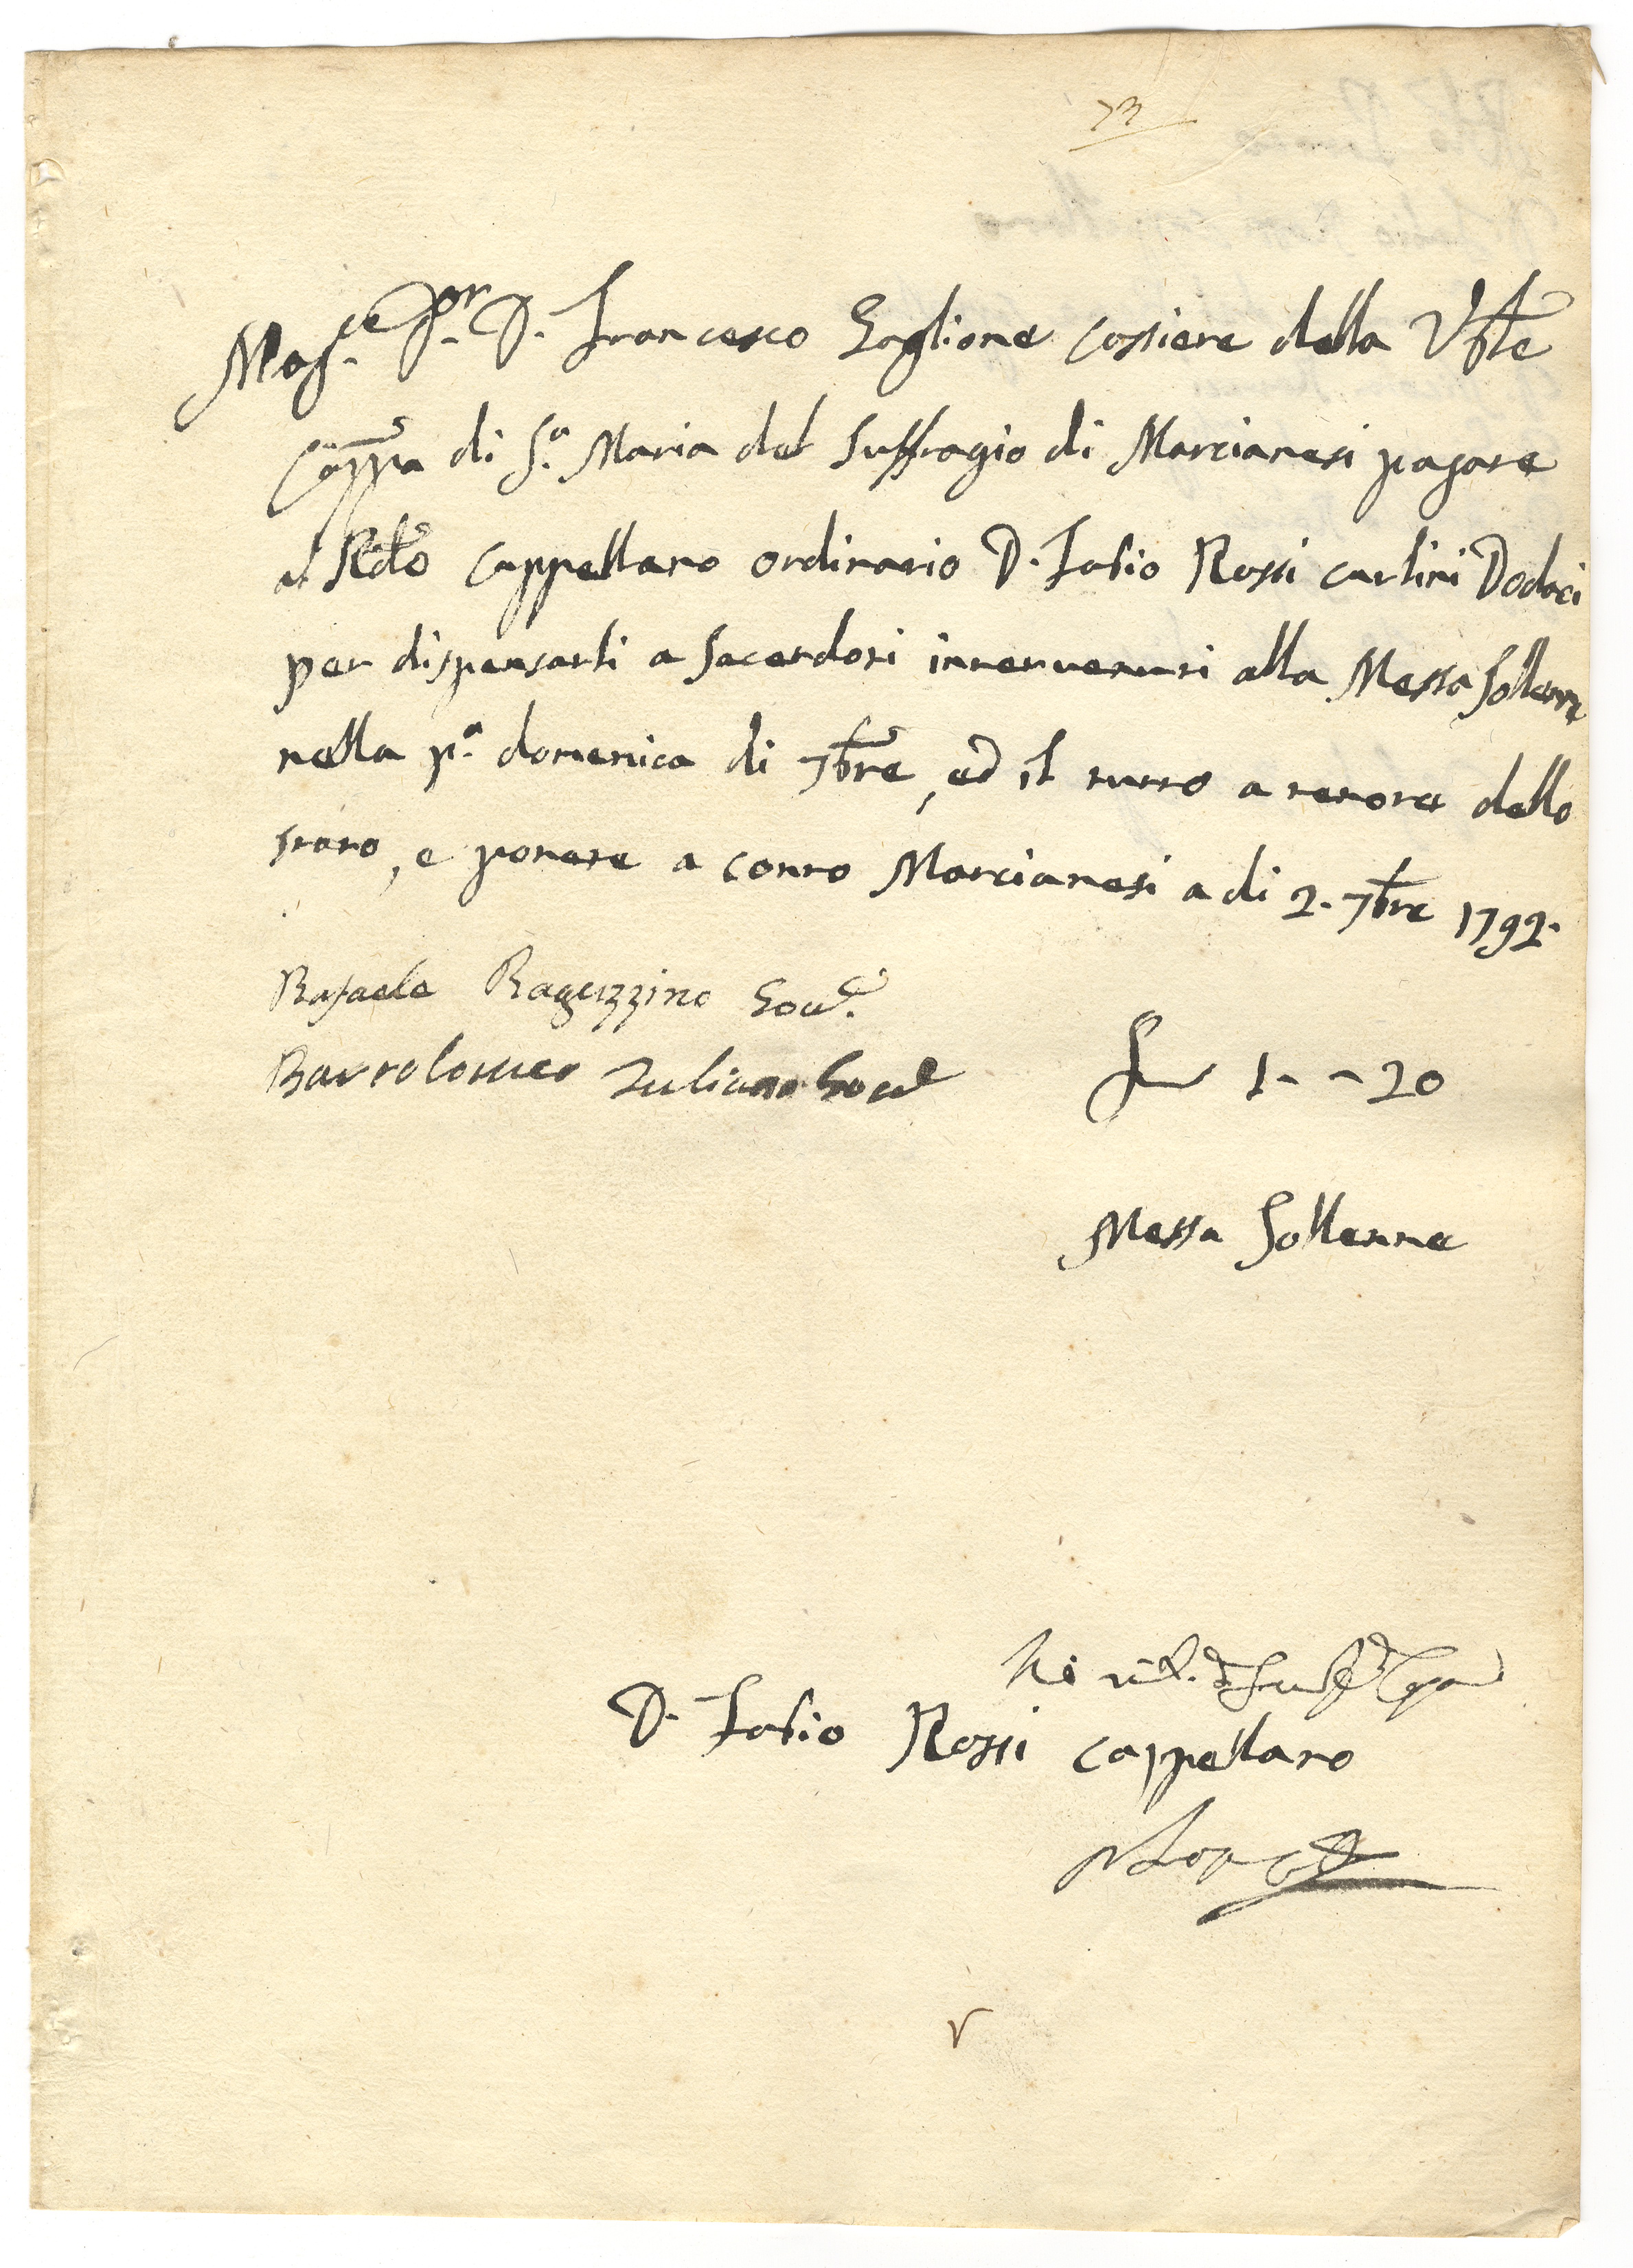 73
Mag.ce Sig.r D. Francesco Gaglione Cassiere della V̅ble
Capp̅a di S.a Maria del Suffragio di Marcianesi pagare
al Rdo̅ Cappellano ordinario D. Fabio Rossi carlini Dodeci
per dispensarli a Sacerdoti intervenuti alla Messa Sollenne
nella p.a domenica di 7bre, ed il tutto a tenore dello
stato, e ponere a conto Marcianesi a di 2. 7bre 1792.
Rafaele Raguzzino Gov.e
Bartolomeo Iuliano Gov.e
1 - - 20
Messa Sollenne
D. Fabio Rossi Cappellano